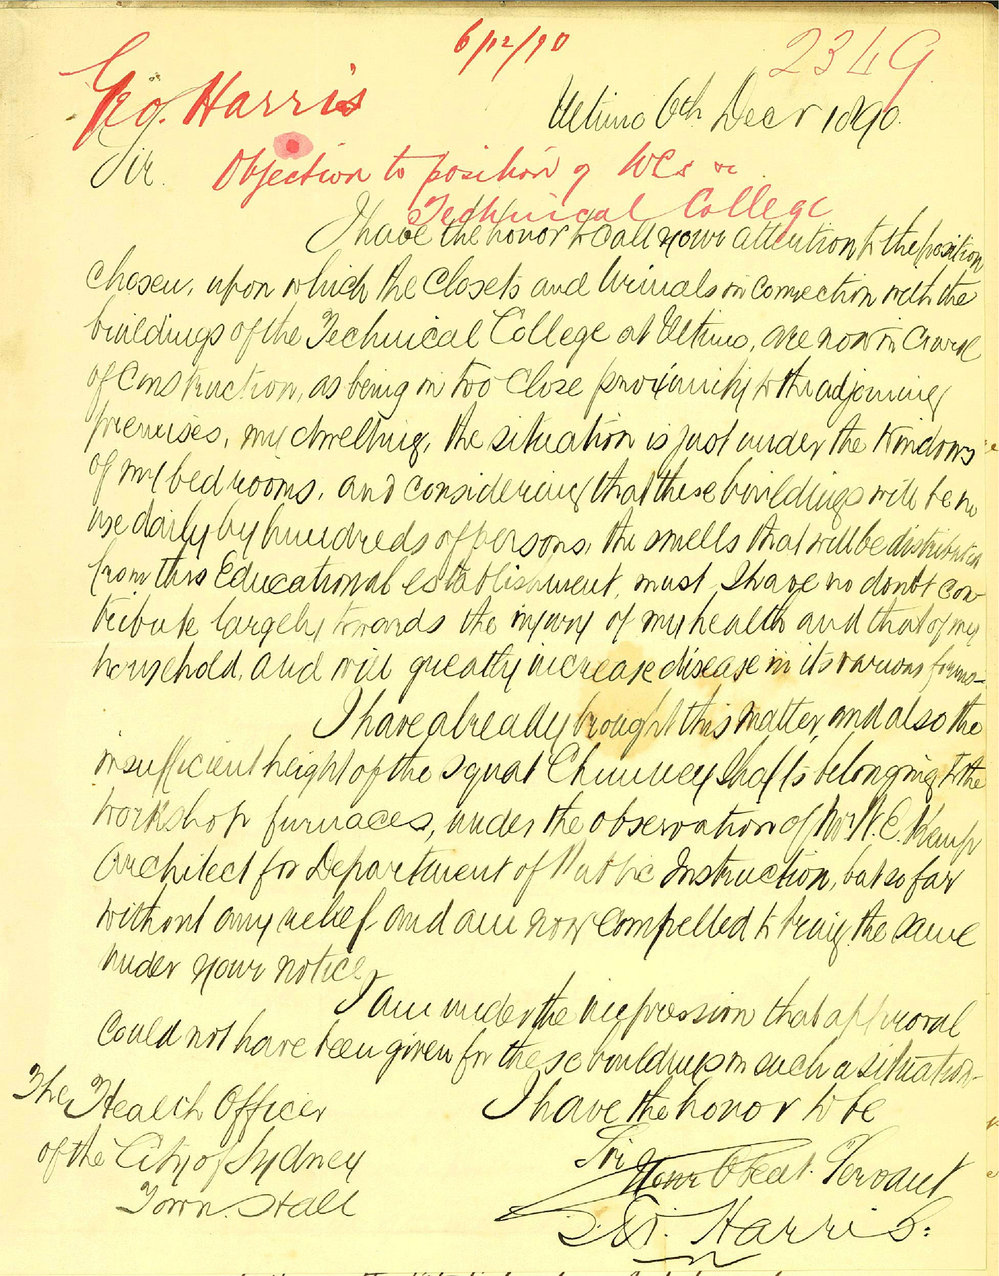 6/12/90
2349
Geo. Harris
Ultimo 6th Decr 1890.
Sir.
Objection to position of WCs
Technical College
I have the honor to call your attention to the position
chosen, upon which the Closets and Urinals in connection with the
buildings of the Technical College at Ultimo, are now in Course
of Construction, as being in too close proximity to the adjoining
premises, my dwelling, the situation is just under the windows
of my bed rooms, and considering that these buildings will be in
use daily by hundreds of persons, the smells that will be distributed
from this Educational establishment, must, I have no doubt con
tribute largely towards the injury of my health and that of my
household, and will greatly increase disease in its various forms—
I have already brought this matter, and also the
insufficient height of the squat Chimney Shafts belonging to the
workshop furnaces, under the observation of Mr W. E. Kemp
Architect for Department of Public Instruction, but so far
without any relief and am now compelled to bring the same
under your notice
I am under the impression that approval
could not have been given for these buildings in such a situation
I have the honor to be
Sir
Your Obedt. Servant
Geo. Harris.
The Health Officer
of the City of Sydney
Town Hall